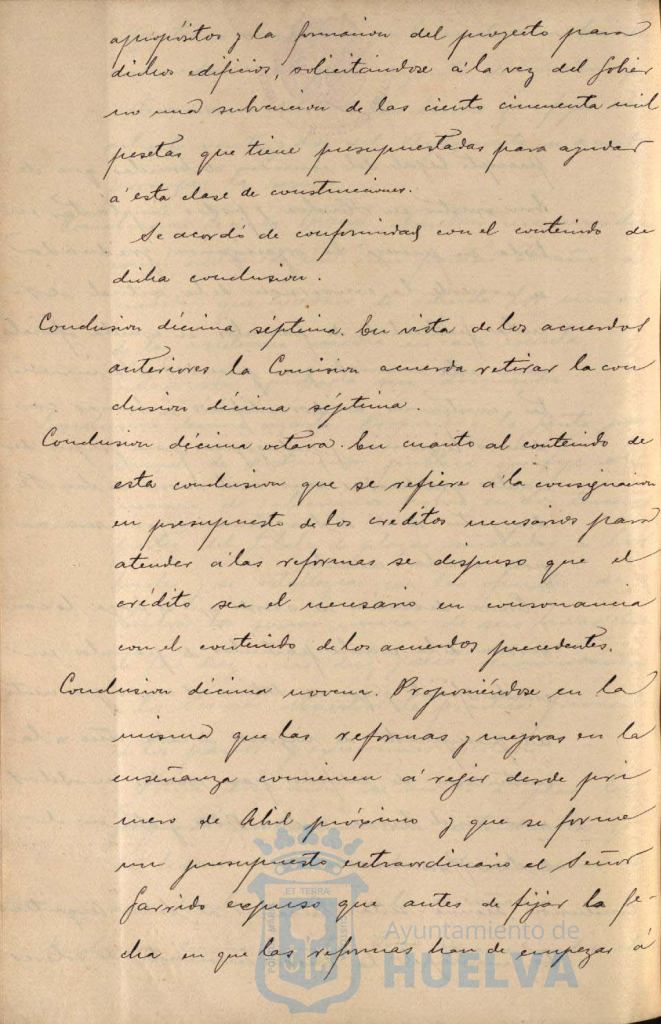 apropósitos y la formacion del proyecto para
dichos edificios, solicitándose á la vez del Gobier
no una subvencion de las ciento cincuenta mil
pesetas que tiene presupuestadas para ayudar
á esta clase de construcciones.
Se acordó de conformidad con el contenido de
dicha conclusion.
Conclusion décima séptima. En vista de los acuerdos
anteriores la Comision acuerda retirar la con
clusion décima séptima.
Conclusion décima octava. En cuanto al contenido de
esta conclusion que se refiere á la consignacion
en presupuesto de los créditos necesarios para
atender á las reformas se dispuso que el
crédito sea el necesario en consonancia
con el contenido de los acuerdos precedentes.
Conclusion décima novena. Proponiéndose en la
misma que las reformas y mejoras en la
enseñanza comiencen á regir desde pri
mero de Abril próximo y que se forme
un presupuesto extraordinario el Señor
Garrido expuso que antes de fijar la fe-
cha en que las reformas han de empezar á
ET TERRA
Ayuntamiento de
HUELVA